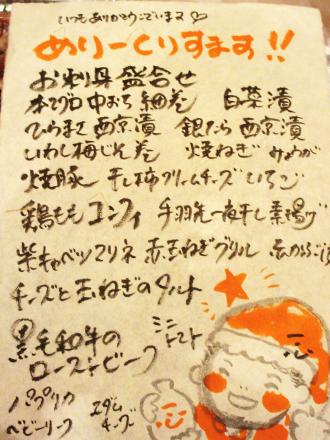 いつもありがとうございます♡
めりーくりすます!!
お刺身盛合せ
本マグロ中おち細巻 白菜漬
ひらまさ西京漬 銀だら西京漬
いわし梅じそ巻 焼ねぎ みょうが
焼豚 干し柿クリームチーズ いちご
鶏ももコンフィ 手羽先一夜干し素揚げ
紫キャベツマリネ 赤玉ねぎグリル
チーズと玉ねぎのタルト
黒毛和牛の ミニトマト
ローストビーフ
パプリカ エダムチーズ
ベビーリーフ